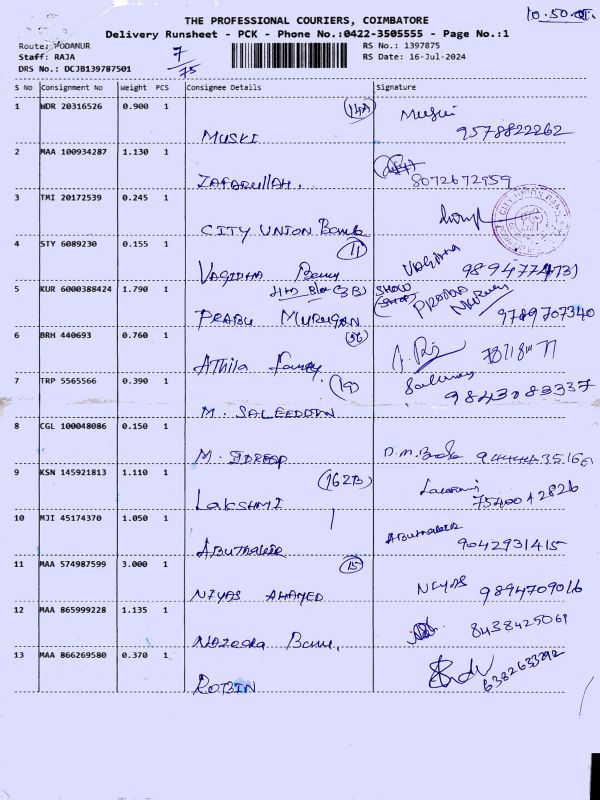 10.50
THE PROFESSIONAL COURIERS, COIMBATORE
Delivery Runsheet - PCK - Phone No.:0422-3505555 - Page No.:1
Route: PODANUR
Staff: RAJA
DRS No.: DCJB139787501
7/75
RS No.: 1397875
RS Date: 16-Jul-2024
S No Consignment No Weight PCS Consignee Details Signature
1 WDR 20316526 0.900 1 MUSKI 9578822262
2 MAA 100934287 1.130 1 ZAFARULLAH. 8072672959
3 TMI 20172539 0.245 1 CITY UNION Bank
4 STY 6089230 0.155 1 VAGIDHA Banu 11 VAGIDHA
5 KUR 6000388424 1.790 1 PRABU MURUGAN 9789707340
6 BRH 440693 0.760 1 Athila 36
7 TRP 5565566 0.390 1 M. SALEEDDIN 9843083337
8 CGL 100048086 0.150 1 M.
9 KSN 145921813 1.110 1 LAKSHMI 162B
10 MJI 45174370 1.050 1 ABUTHAHEER 9042931415
11 MAA 574987599 3.000 1 NIYAS AHAMED 15 NIYAS 9894709016
12 MAA 865999228 1.135 1 Nazeera Banu. 8438425069
13 MAA 866269580 0.370 1 ROTBIN 6382633292